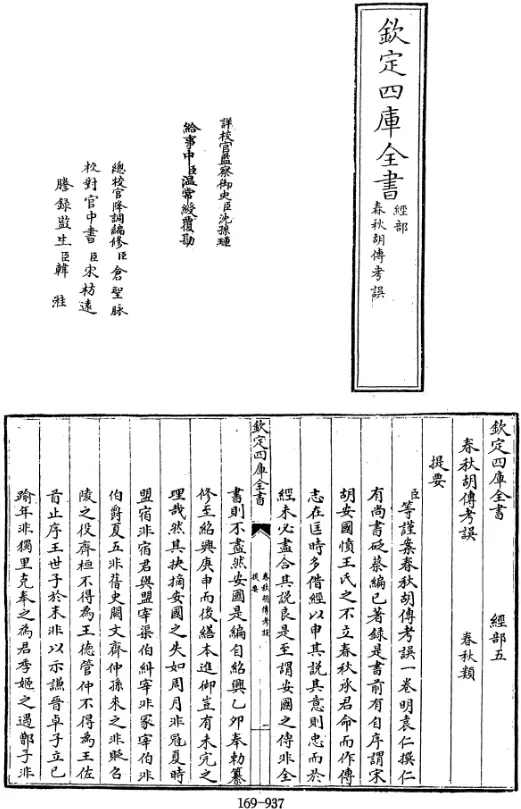 欽定四庫全書
經部
春秋胡傳考誤
詳校官監察御史臣沈孫璉
給事中臣溫常綬覆勘
總校官降調編修臣倉聖脉
校對官中書臣宋枋遠
謄錄監生臣韓㴋
欽定四庫全書 經部五
春秋胡傳考誤 春秋類
提要
臣等謹案春秋胡傳考誤一卷明袁仁撰仁
有尚書砭蔡編已著錄是書前有自序謂宋
胡安國憤王氏之不立春秋承君命而作傳
志在匡時多借經以申其說其意則忠而於
經未必盡合其說良是至謂安國之傳非全
欽定四庫全書
春秋胡傳考誤
提要
一
書則不盡然安國是編自紹興乙卯奉勅纂
修至紹興庚申而後繕本進御豈有未完之
理哉然其抉摘安國之失如周月非冠夏時
盟宿非宿君與盟宰渠伯糾宰非冢宰伯非
伯爵夏五非舊史闕文齊仲孫來之非貶召
陵之役齊桓不得為王德管仲不得為王佐
首止序王世子於末非以示謙晉卓子立已
踰年非獨里克奉之為君季姬之遇鄫子非
169-937